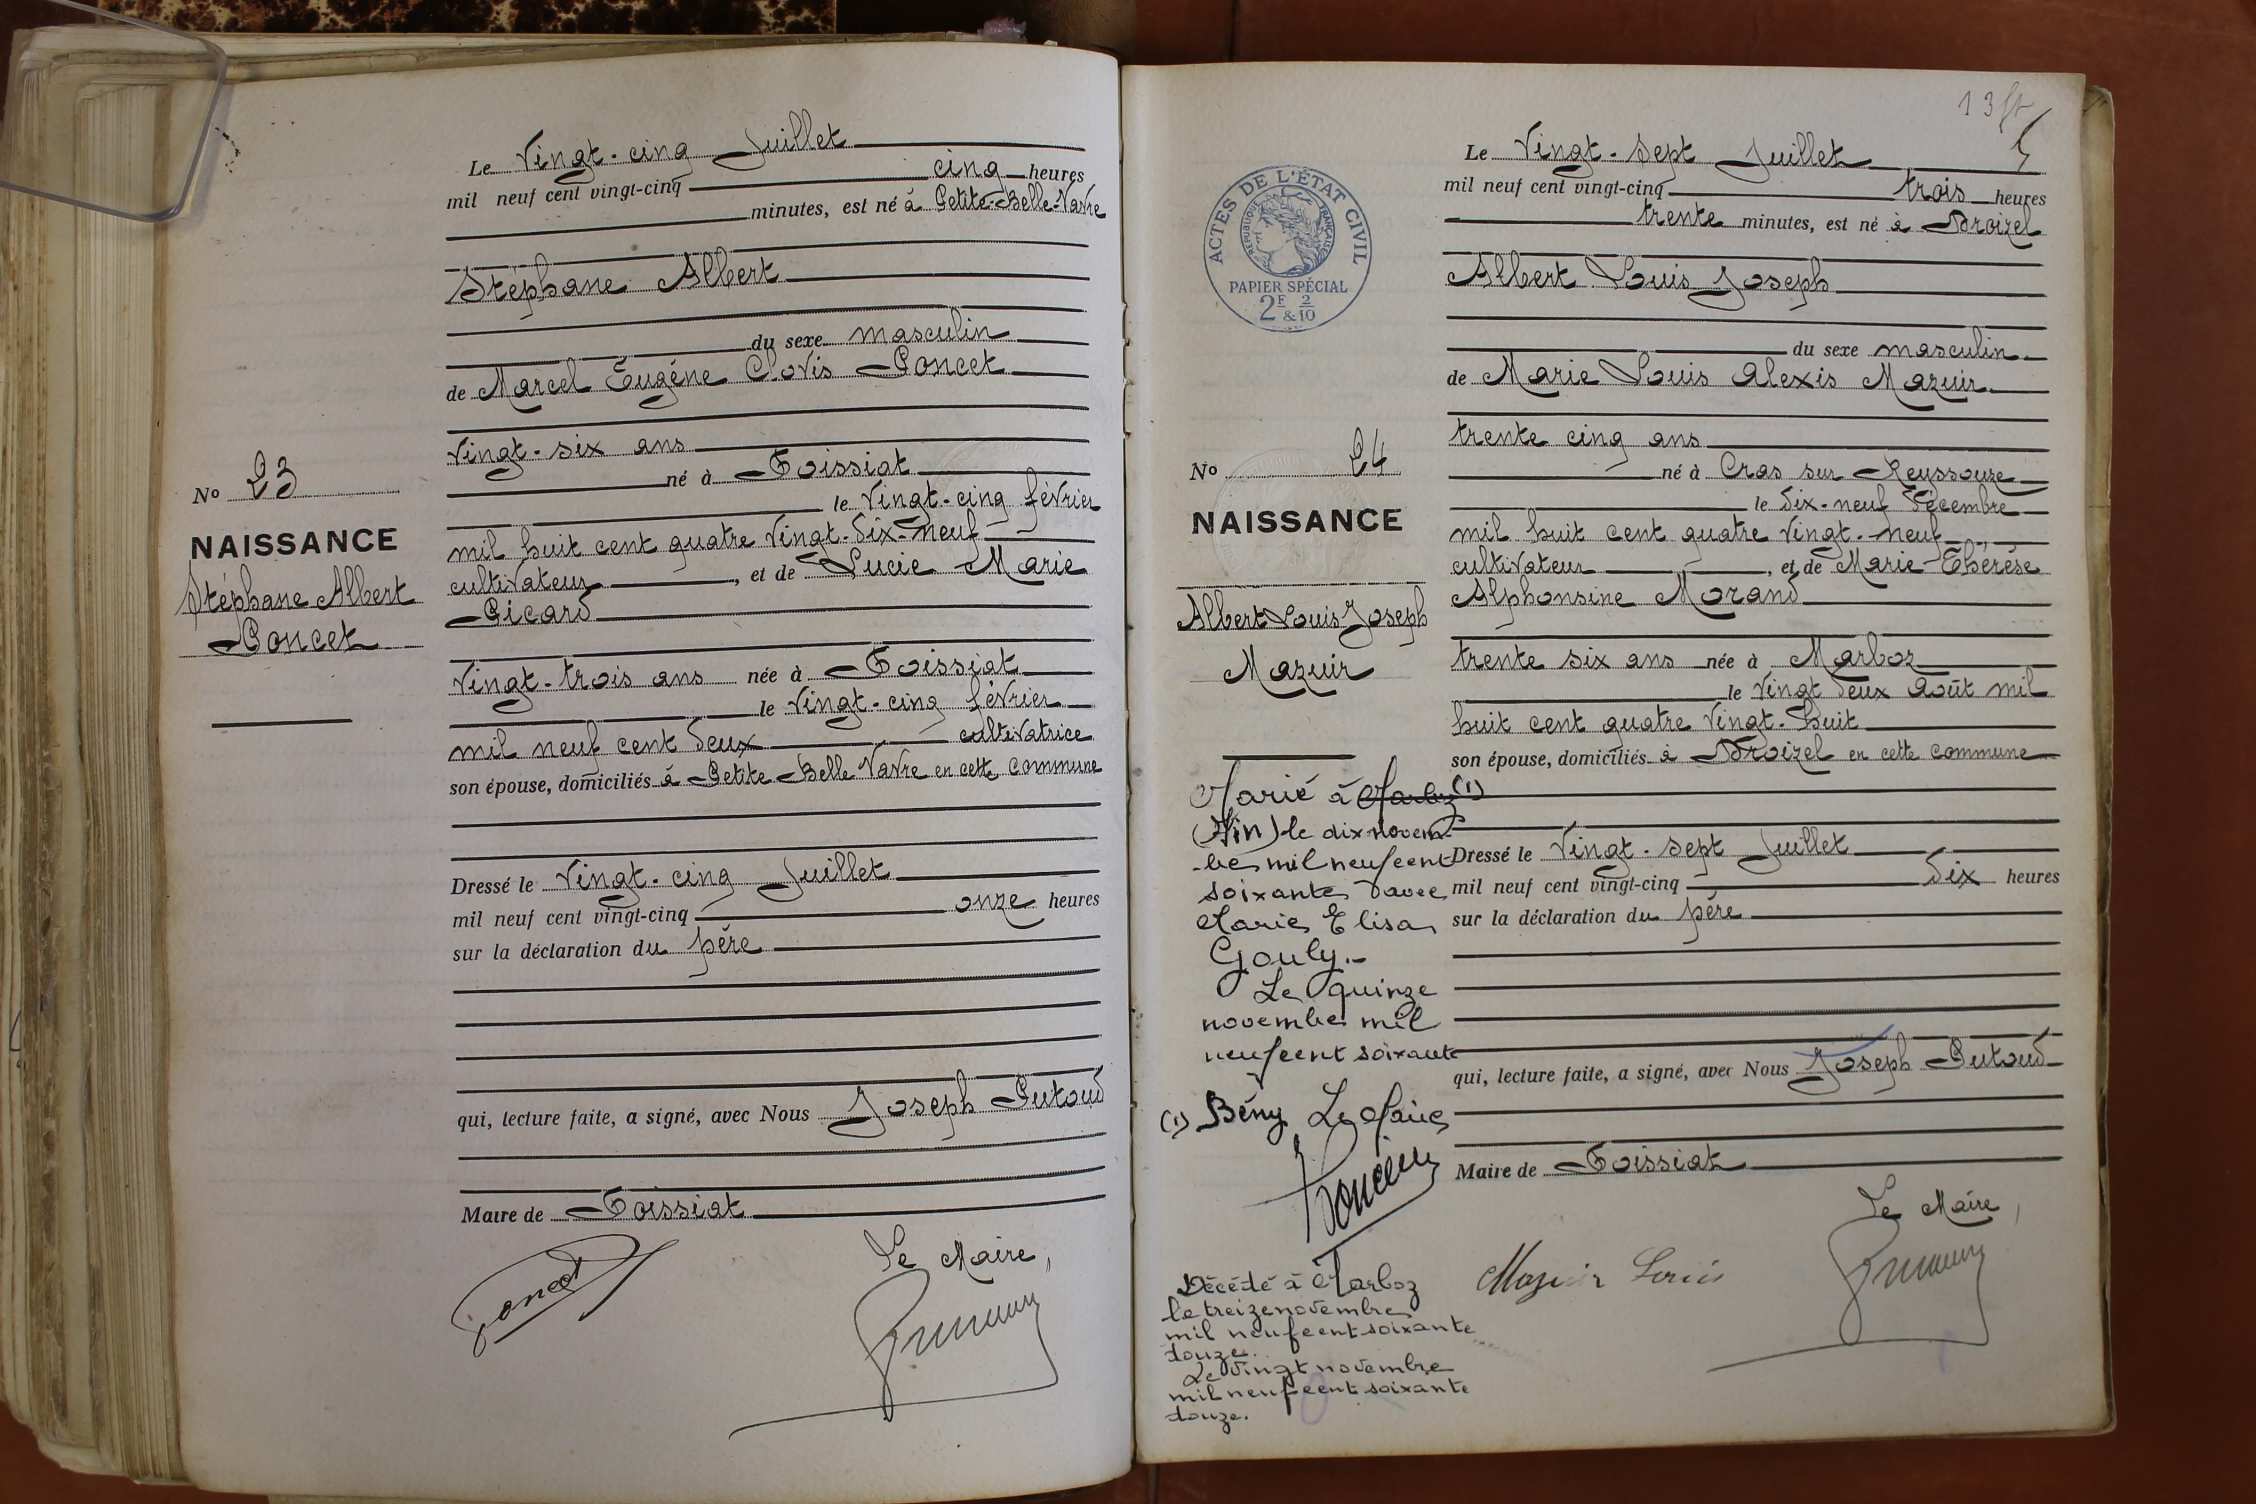 Le Vingt-cinq Juillet
mil neuf cent vingt-cinq cinq heures
minutes, est né à Petite-Belle-Vavre
Stéphane Albert
du sexe masculin
de Marcel Eugène Clovis Poncet
Vingt-six ans
né à Foissiat
le Vingt-cinq février
mil huit cent quatre Vingt-dix-neuf
cultivateur, et de Lucie Marie
Picard
Vingt-trois ans née à Foissiat
le Vingt-cinq février
mil neuf cent deux cultivatrice
son épouse, domiciliés à Petite Belle Vavre en cette commune
Dressé le Vingt-cinq Juillet
mil neuf cent vingt-cinq onze heures
sur la déclaration du père
qui, lecture faite, a signé, avec Nous Joseph Putoud
Maire de Foissiat
Le Maire,
Poncet
No 23
NAISSANCE
Stéphane Albert
Poncet
13
Le Vingt-sept Juillet
mil neuf cent vingt-cinq trois heures
trente minutes, est né à Broizel
Albert Louis Joseph
du sexe masculin
de Marie Louis Alexis Mazuir
trente cinq ans
né à Cras sur Reyssouze
le dix-neuf décembre
mil huit cent quatre Vingt-neuf
cultivateur, et de Marie-Thérèse
Alphonsine Morand
trente six ans née à Marboz
le Vingt deux Août mil
huit cent quatre Vingt-huit
son épouse, domiciliés à Broizel en cette commune
Dressé le Vingt-sept Juillet
mil neuf cent vingt-cinq dix heures
sur la déclaration du père
qui, lecture faite, a signé, avec Nous Joseph Putoud
Maire de Foissiat
Le Maire,
Mazuir Louis
ACTES DE L'ÉTAT CIVIL
RÉPUBLIQUE FRANÇAISE
PAPIER SPÉCIAL
2F & 2/10
No 24
NAISSANCE
Albert Louis Joseph
Mazuir
Marié à Marboz (1)
(Ain) le dix novem-
bre mil neuf cent
soixante avec
Marie Elisa
Gouly.-
Le quinze
novembre mil
neuf cent soixante
(1) Bény Le Maire
Décédé à Marboz
le treize novembre
mil neuf cent soixante
douze.
Le vingt novembre
mil neuf cent soixante
douze.